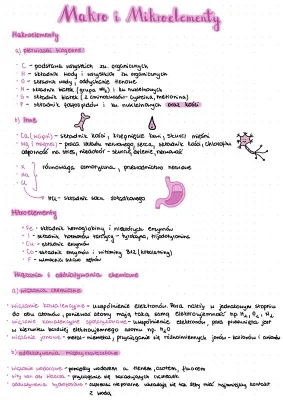 Makro i Mikroelementy
Makroelementy
a) pierwiastki biogenne
- C - podstawa wszystkich zw. organicznych
- H - składnik wody i wszystkich zw. organicznych
- O - składnik wody, oddychanie tlenowe
- N - składnik białek (grupa NH₂) i kw. nukleinowych
- S - składnik białek (2 aminokwasów - cysteina, metionina)
- P - składnik fosfolipidów i kw. nukleinowych oraz kości
b) Inne
- Ca (wapń) - składnik kości, krzepnięcie krwi, skurcz mięśni
- Mg (magnez) - praca układu nerwowego, serca, składnik kości, chlorofilu
odporność na stres, niedobór - skurcze, senność, nerwowość
- K
- Na
- Cl
równowaga osmotyczna, przewodnictwo nerwowe
HCl - składnik soku żołądkowego
Mikroelementy
- Fe - składnik hemoglobiny i niektórych enzymów
- I - składnik hormonów tarczycy - tyroksyna, trójjodotyronina
- Cu - składnik enzymów
- Co - składnik enzymów i witaminy B12 (kobalamina)
- F - wzmacnia szkliwo zębów
Wiązania i oddziaływania chemiczne
a) wiązania chemiczne
- wiązanie kowalencyjne - uwspólnienie elektronów. Para należy w jednakowym stopniu
do obu atomów, ponieważ atomy mają taką samą elektroujemność np. H₂, O₂, N₂
- wiązanie kowalencyjne spolaryzowane - uwspólnienie elektronów, para przesunięta jest
w kierunku bardziej elektroujemnego atomu np. H₂O
- wiązanie jonowe - metal - niemetal, przyciąganie się różnoimiennych jonów - kationów i anionów
b) oddziaływania międzycząsteczkowe
- wiązanie wodorowe - pomiędzy wodorem a tlenem, azotem, fluorem
- siły van der Waalsa - przyciąganie się
- oddziaływania hydrofobowe - cząsteczki niepolarne układają się tak żeby mieć najmniejszy kontakt
z wodą